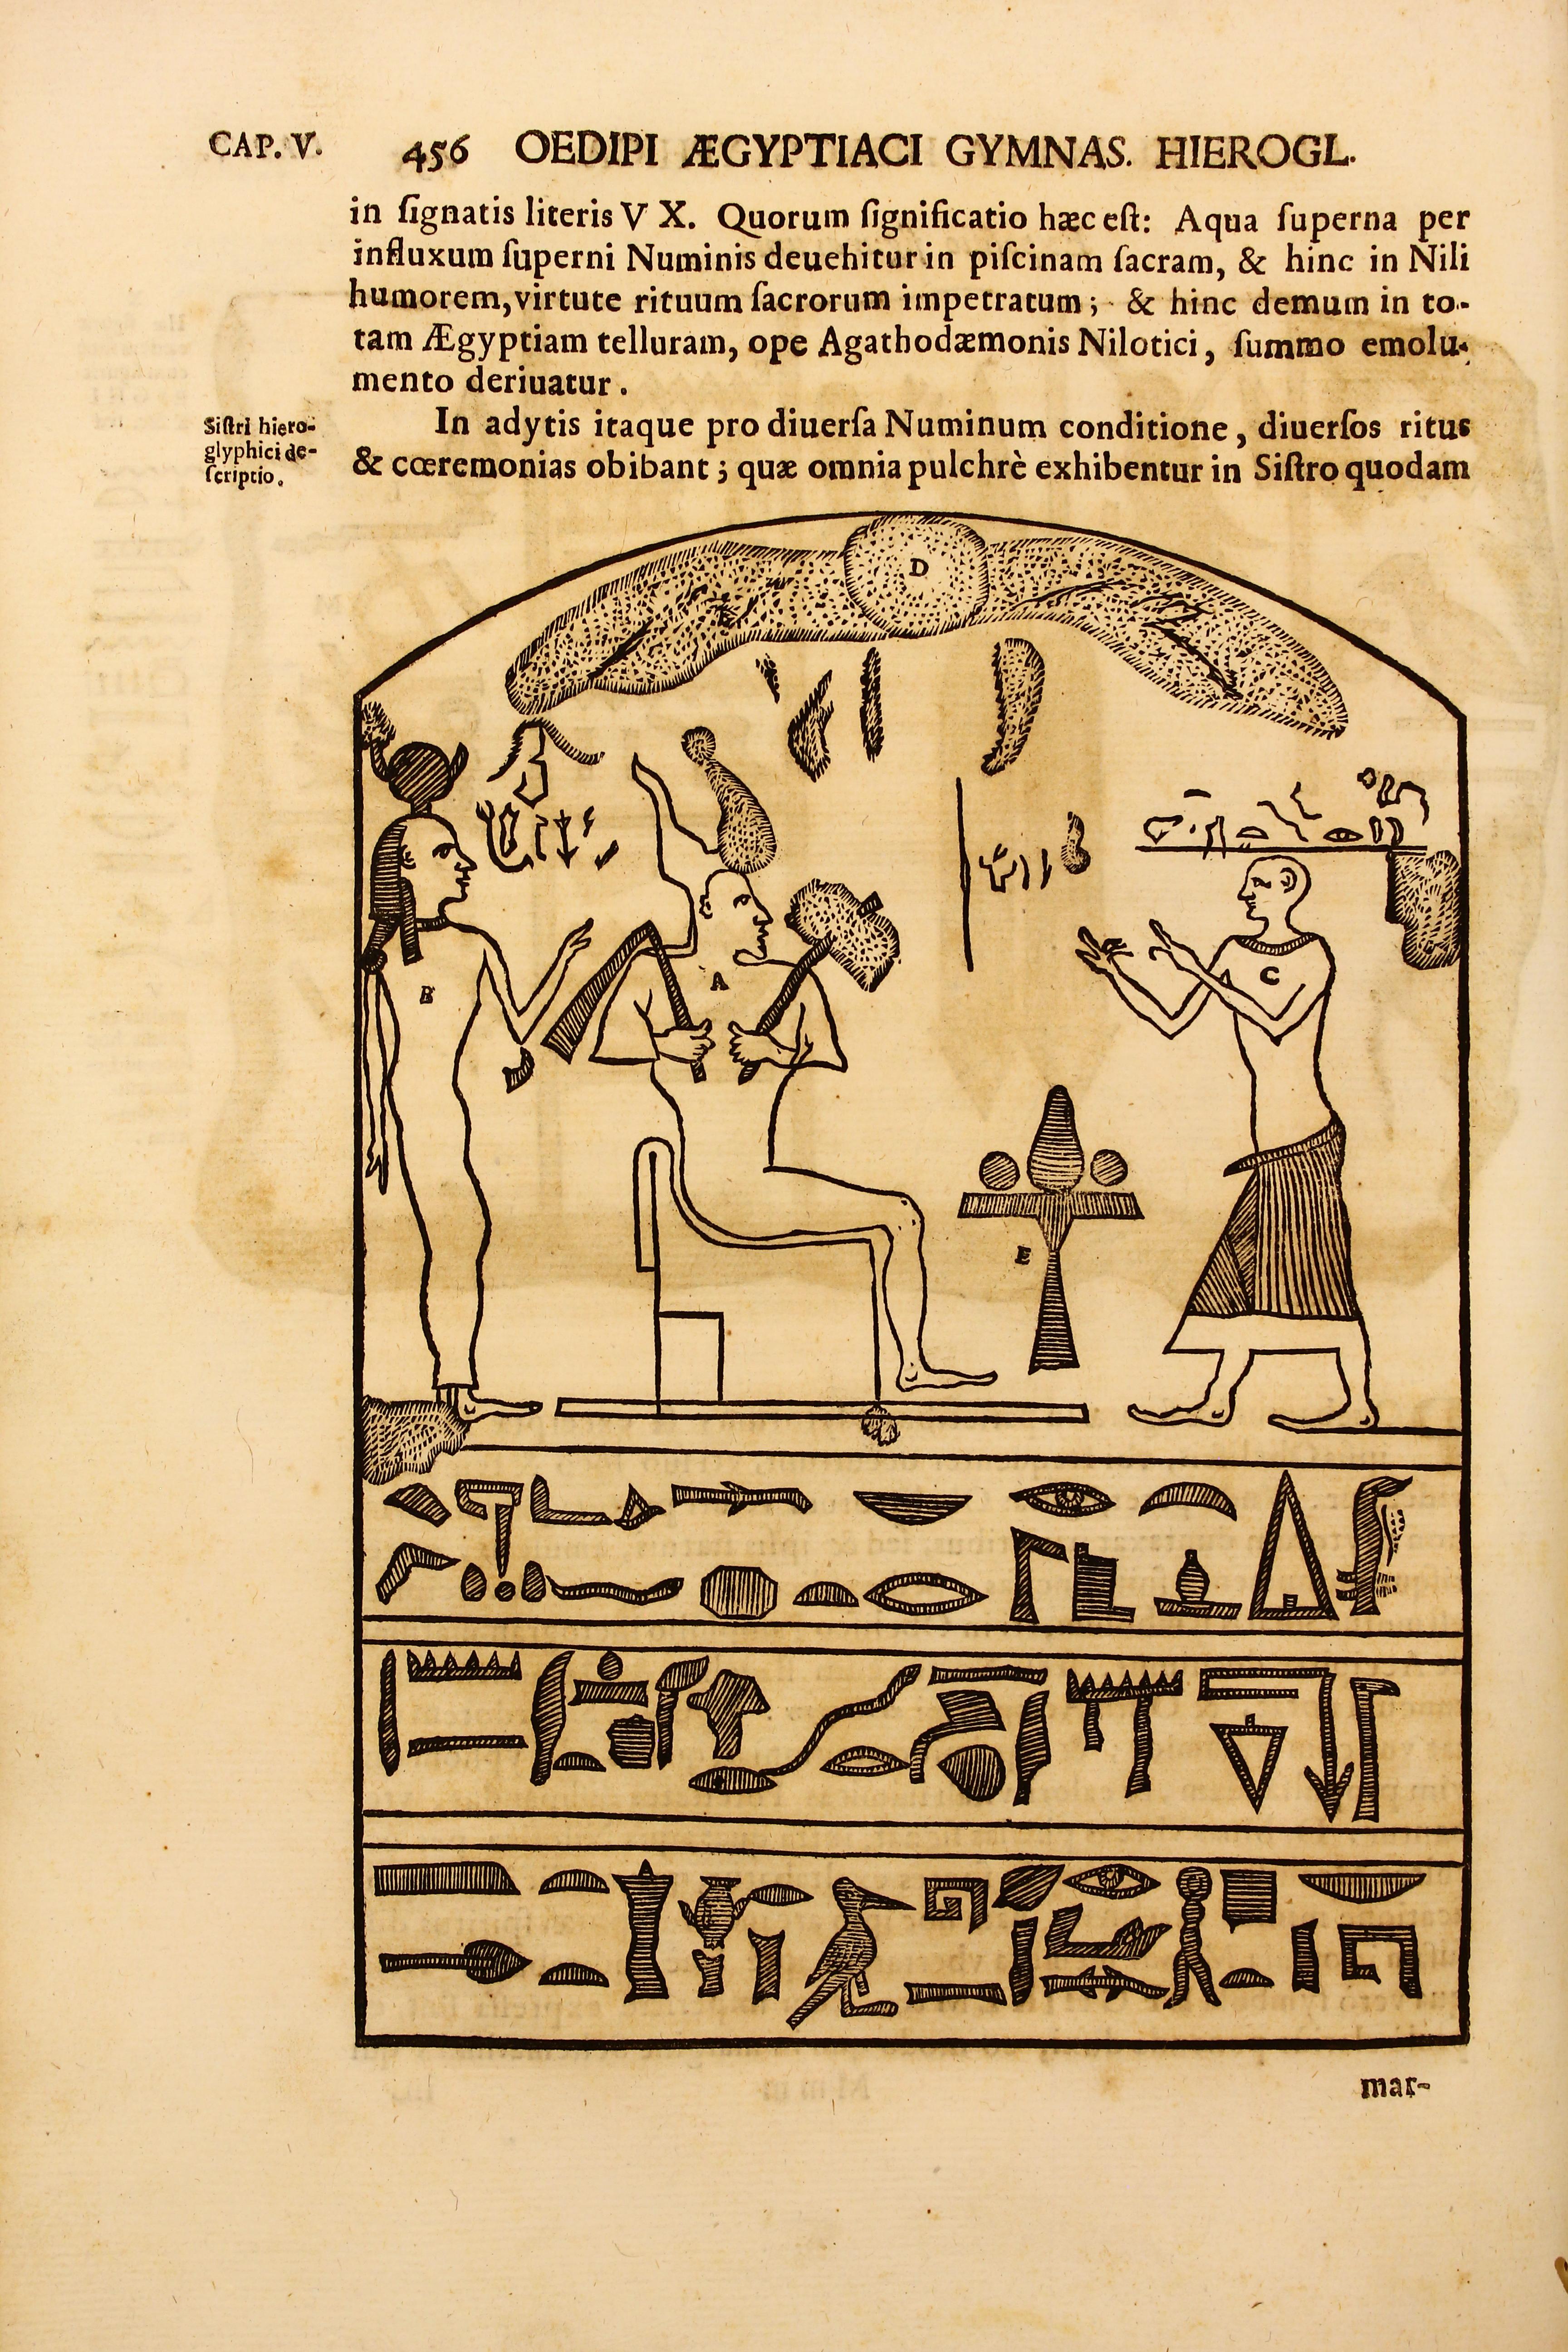 CAP. V.
456 OEDIPI ÆGYPTIACI GYMNAS. HIEROGL.
in ſignatis literis V X. Quorum ſignificatio hæc eſt: Aqua ſuperna per
influxum ſuperni Numinis deuehitur in piſcinam ſacram, & hinc in Nili
humorem, virtute rituum ſacrorum impetratum; & hinc demum in to-
tam Ægyptiam telluram, ope Agathodæmonis Nilotici, ſummo emolu-
mento deriuatur.
Siſtri hiero-
glyphici de-
ſcriptio.
In adytis itaque pro diuerſa Numinum conditione, diuerſos ritus
& cœremonias obibant; quæ omnia pulchrè exhibentur in Siſtro quodam
D
B
A
C
E
mar-